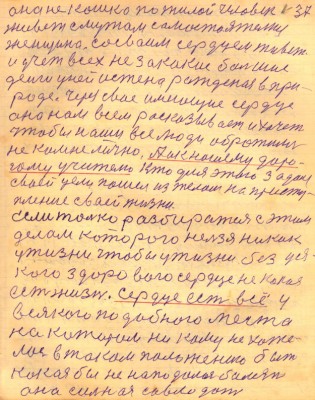 она не кошка пожилой человек в 37
живет с мужам самостоятелну
женщина, со сваим сердцем живет
и учет всех не за какие болшие
денги у ней истена рождения в при-
роде. Через свае имеющие сердце
она нам всем расказывает и хочет
чтобы наши все люди обротили
не ко мне лично, А к насиему доро-
гому учителю Кто для этого задался
сваей цели пошел из телам на присту-
пление сваей жизни.
Если толко разбиратся с этим
делам которого нелзя никак
у жизни чтобы у жизни без вся-
кого здорового сердце не какая
ест жизн. Сердце ест всё у
всякого подобного места
на котором ни кому не хоте-
лос в таком положению быт
какая бы не нападола болезн
она силная савлодат